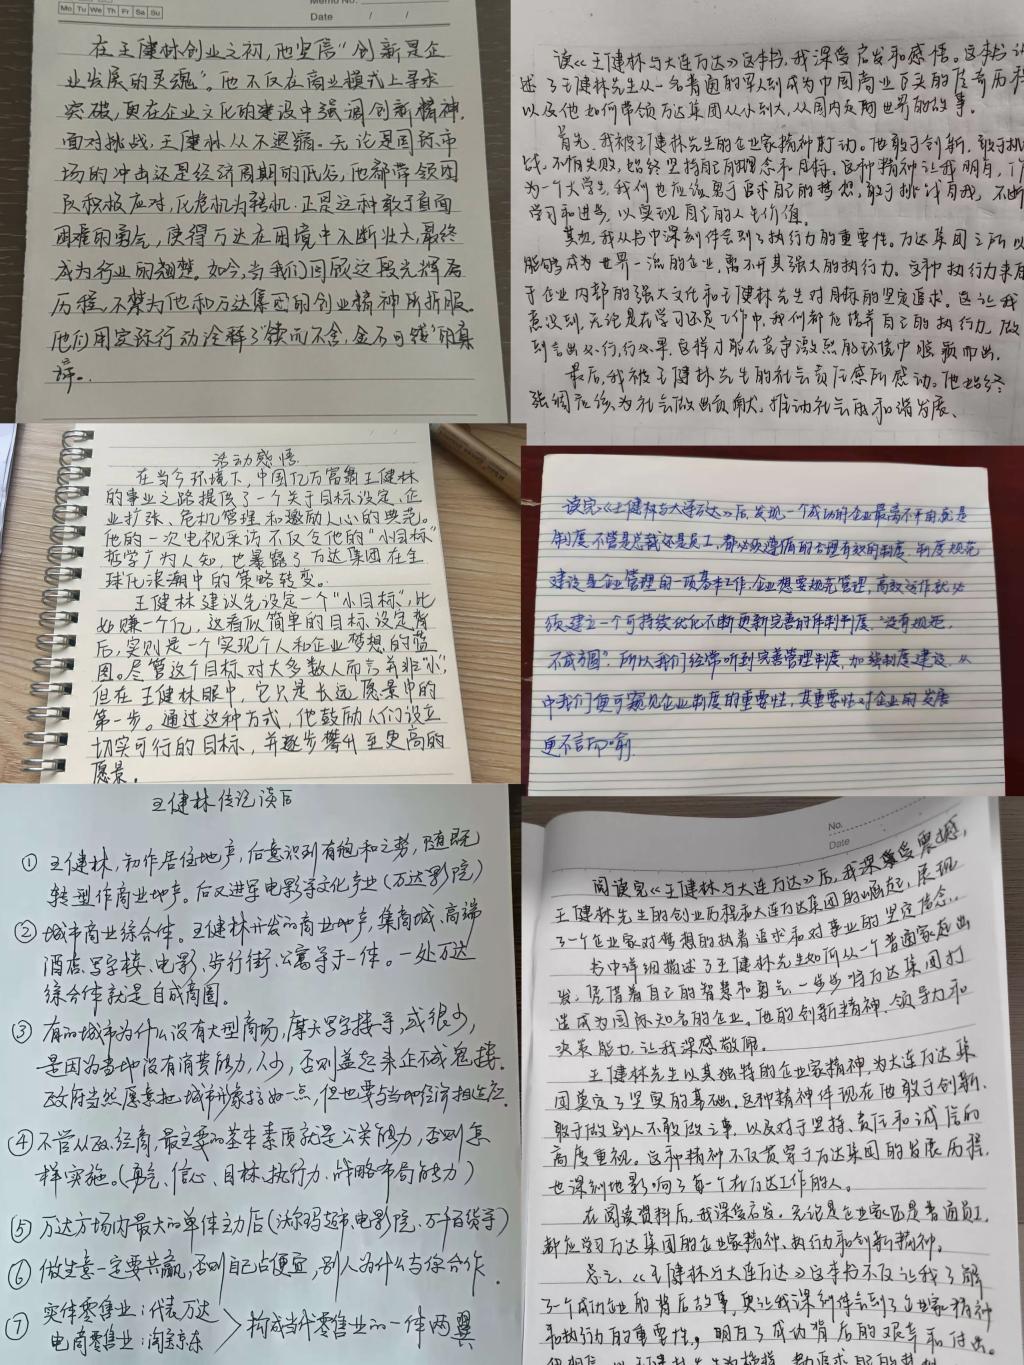 Mo Tu We Th Fr Sa Su
Memo No.
Date / /
在王健林创业之初，他坚信“创新是企
业发展的灵魂”。他不仅在商业模式上寻求
突破，更在企业文化的建设中强调创新精神。
面对挑战，王健林从不退缩。无论是国际市
场的冲击还是经济周期的低谷，他都带领团
队积极应对，化危机为转机。正是这种敢于直面
困难的勇气，使得万达在困境中不断壮大，最终
成为行业的翘楚。如今，当我们回顾这段光辉
历程，不禁为他和万达集团的创业精神所折服。
他们用实际行动诠释了“锲而不舍，金石可镂”的真
谛。
读《王健林与大连万达》这本书，我深受启发和感悟。这本书
述了王健林先生从一名普通的军人到成为中国商业巨头的传奇历程
以及他如何带领万达集团从小到大，从国内走向世界的故事。
首先，我被王健林先生的企业家精神所打动。他敢于创新，敢于挑
战，不怕失败，始终坚持自己的理念和目标。这种精神让我明白，作
为一个大学生，我们也应该勇于追求自己的梦想，敢于挑战自我，不断
学习和进步，以实现自己的人生价值。
其次，我从书中深刻体会到了执行力的重要性。万达集团之所以
能够成为世界一流的企业，离不开其强大的执行力。这种执行力来自
于企业内部的强大文化和王健林先生对目标的坚定追求。这让我
意识到，无论是在学习还是工作中，我们都应培养自己的执行力，做
到言出必行，行必果，这样才能在竞争激烈的环境中脱颖而出。
最后，我被王健林先生的社会责任感所感动。他始终
强调应该为社会做出贡献，推动社会的和谐发展、
活动感悟
在当今环境下，中国亿万富翁王健林
的事业之路提供了一个关于目标设定、企
业扩张、危机管理和激励人心的典范。
他的一次电视采访不仅令他的“小目标”
哲学广为人知，也暴露了万达集团在全
球化浪潮中的策略转变。
王健林建议先设定一个“小目标”，比
如赚一个亿，这看似简单的目标设定背
后，实则是一个实现个人和企业梦想的蓝
图。尽管这个目标对大多数人而言并非“小”，
但在王健林眼中，它只是长远愿景中的
第一步。通过这种方式，他鼓励人们设立
切实可行的目标，并逐步攀升至更高的
愿景。
读完《王健林与大连万达》后，发现一个成功的企业最离不开的就是
制度，不管是总裁还是员工，都必须遵循的合理有效的制度。制度规范
建设是企业管理的一项基本工作，企业想要规范管理，高效运作就必
须建立一个可持续优化不断更新完善的体制制度。“没有规矩，
不成方圆”，所以我们经常听到完善管理制度，加强制度建设，从
中我们便可窥见企业制度的重要性，其重要性对企业的发展
更不言而喻
王健林传记读后
① 王健林，初作居住地产，后意识到有饱和之势，随即
转型作商业地产。后又进军电影等文化产业（万达影院）
② 城市商业综合体。王健林开发的商业地产，集商城、高端
酒店、写字楼、电影、步行街、公寓等于一体。一处万达
综合体就是自成商圈。
③ 有的城市为什么没有大型商场，摩天写字楼等，或很少，
是因为当地没有消费能力，人少，否则盖起来正不成鬼楼。
政府当然愿意把城市形象搞好一点，但也要与当地经济相适应。
④ 不管从政、经商，最主要的基本素质就是公关能力，否则怎
样实施。（勇气、信心、目标、执行力、战略布局能力）
⑤ 万达广场内最大的单体主力店（沃尔玛超市、电影院、万千百货等）
⑥ 做生意一定要共赢，否则自己占便宜，别人为什么与你合作
⑦ 实体零售业：代表万达
电商零售业：淘宝京东
构成当代零售业的一体两翼
No.
Date
阅读完《王健林与大连万达》后，我深受震撼，
王健林先生的创业历程和大连万达集团的崛起，展现
了一个企业家对梦想的执着追求和对事业的坚定信念。
书中详细描述了王健林先生如何从一个普通家庭出
发，凭借着自己的智慧和勇气，一步步将万达集团打
造成为国际知名的企业。他的创新精神、领导力和
决策能力，让我深感敬佩。
王健林先生以其独特的企业家精神，为大连万达集
团奠定了坚实的基础。这种精神体现在他敢于创新、
敢于做别人不敢做之事，以及对于坚持、责任和诚信的
高度重视。这种精神不仅贯穿于万达集团的发展历程，
也深刻地影响了每一个在万达工作的人。
在阅读资料后，我深受启发。无论是企业家还是普通员工，
都应学习万达集团的企业家精神、执行力和创新精神。
总之，《王健林与大连万达》这本书不仅让我了解
了一个成功企业的背后故事，更让我深刻体会到了企业家精神
和执行力的重要性。明白了成功背后的艰辛和付出。